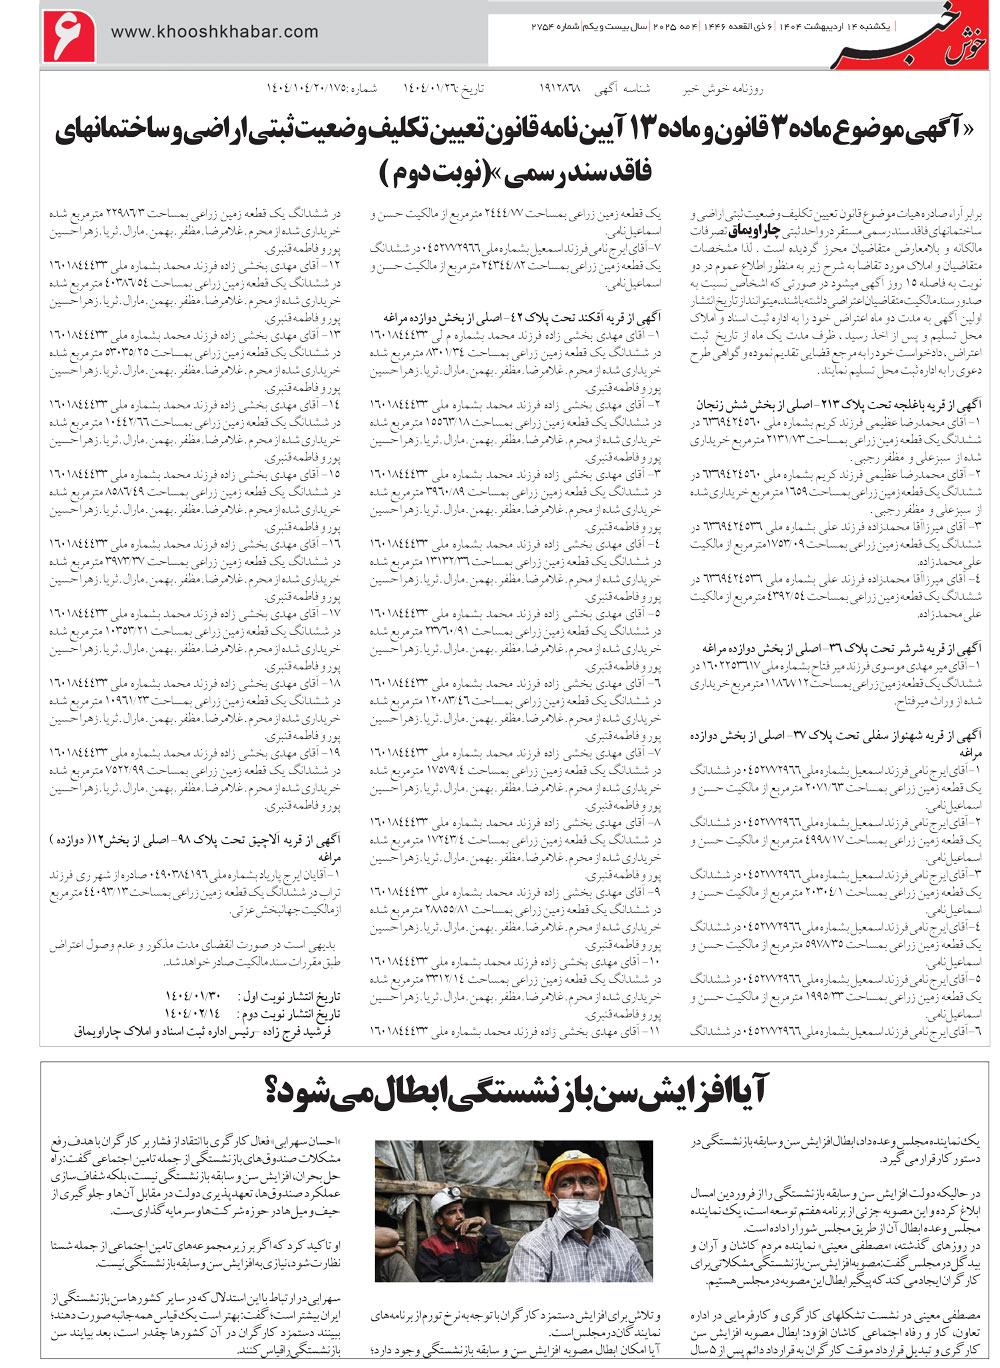 یکشنبه ۱۴ اردیبهشت ۱۴۰۴ | ۶ ذی القعده ۱۴۴۶ | ۴ مه ۲۰۲۵ | سال بیست و یکم | شماره ۲۷۵۴
خوش خبر
www.khooshkhabar.com
۶
روزنامه خوش خبر شناسه آگهی ۱۹۱۲۸۶۸ تاریخ :۱۴۰۴/۰۱/۲۶ شماره :۱۴۰۴/۱۰۴/۲۰/۱۷۵
«آگهی موضوع ماده ۳ قانون و ماده ۱۳ آیین نامه قانون تعیین تکلیف وضعیت ثبتی اراضی و ساختمانهای
فاقد سند رسمی»(نوبت دوم )
برابر آراء صادره هیات موضوع قانون تعیین تکلیف وضعیت ثبتی اراضی و
ساختمانهای فاقد سند رسمی مستقر در واحد ثبتی چاراویماق تصرفات
مالکانه و بلامعارض متقاضیان محرز گردیده است . لذا مشخصات
متقاضیان و املاک مورد تقاضا به شرح زیر به منظور اطلاع عموم در دو
نوبت به فاصله ۱۵ روز آگهی میشود در صورتی که اشخاص نسبت به
صدور سند مالکیت متقاضیان اعتراضی داشته باشند، میتوانند از تاریخ انتشار
اولین آگهی به مدت دو ماه اعتراض خود را به اداره ثبت اسناد و املاک
محل تسلیم و پس از اخذ رسید ، ظرف مدت یک ماه از تاریخ ثبت
اعتراض ، دادخواست خود را به مرجع قضایی تقدیم نموده و گواهی طرح
دعوی را به اداره ثبت محل تسلیم نمایند.
آگهی از قریه باغلجه تحت پلاک ۲۱۳- اصلی از بخش شش زنجان
۱- آقای محمدرضا عظیمی فرزند کریم بشماره ملی ۶۳۶۹۴۲۴۵۶۰ در
ششدانگ یک قطعه زمین زراعی بمساحت ۲۱۳۱/۷۳ مترمربع خریداری
شده از سبزعلی و مظفر رجبی .
۲- آقای محمدرضا عظیمی فرزند کریم بشماره ملی ۶۳۶۹۴۲۴۵۶۰ در
ششدانگ یک قطعه زمین زراعی بمساحت ۱۶۵۹ مترمربع خریداری شده
از سبزعلی و مظفر رجبی .
۳- آقای میرزاآقا محمدزاده فرزند علی بشماره ملی ۶۳۶۹۴۲۴۵۳۶ در
ششدانگ یک قطعه زمین زراعی بمساحت ۱۷۵۳/۰۹مترمربع از مالکیت
علی محمدزاده.
۴- آقای میرزاآقا محمدزاده فرزند علی بشماره ملی ۶۳۶۹۴۲۴۵۳۶ در
ششدانگ یک قطعه زمین زراعی بمساحت ۴۳۹۲/۵۴ مترمربع از مالکیت
علی محمدزاده.
آگهی از قریه شرشر تحت پلاک ۳۶- اصلی از بخش دوازده مراغه
۱- آقای میر مهدی موسوی فرزند میر فتاح بشماره ملی ۱۶۰۲۲۵۳۶۱۷ در
ششدانگ یک قطعه زمین زراعی بمساحت ۱۱۸۶۷/۱۲ مترمربع خریداری
شده از وراث میرفتاح.
آگهی از قریه شهنواز سفلی تحت پلاک ۳۷- اصلی از بخش دوازده
مراغه
۱- آقای ایرج نامی فرزند اسمعیل بشماره ملی ۰۴۵۲۷۷۲۹۶۶ در ششدانگ
یک قطعه زمین زراعی بمساحت ۲۰۷۱/۶۳ مترمربع از مالکیت حسن و
اسماعیل نامی.
۲- آقای ایرج نامی فرزند اسمعیل بشماره ملی ۰۴۵۲۷۷۲۹۶۶ در ششدانگ
یک قطعه زمین زراعی بمساحت ۴۹۹۸/۱۷ مترمربع از مالکیت حسن و
اسماعیل نامی.
۳- آقای ایرج نامی فرزند اسمعیل بشماره ملی ۰۴۵۲۷۷۲۹۶۶ در ششدانگ
یک قطعه زمین زراعی بمساحت ۲۰۳۰۴/۱ مترمربع از مالکیت حسن و
اسماعیل نامی.
۴- آقای ایرج نامی فرزند اسمعیل بشماره ملی ۰۴۵۲۷۷۲۹۶۶ در ششدانگ
یک قطعه زمین زراعی بمساحت ۵۹۷۸/۳۵ مترمربع از مالکیت حسن و
اسماعیل نامی.
۵- آقای ایرج نامی فرزند اسمعیل بشماره ملی ۰۴۵۲۷۷۲۹۶۶ در ششدانگ
یک قطعه زمین زراعی بمساحت ۱۹۹۵/۳۳ مترمربع از مالکیت حسن و
اسماعیل نامی.
۶- آقای ایرج نامی فرزند اسمعیل بشماره ملی ۰۴۵۲۷۷۲۹۶۶ در ششدانگ
یک قطعه زمین زراعی بمساحت ۲۴۴۴/۷۷ مترمربع از مالکیت حسن و
اسماعیل نامی.
۷- آقای ایرج نامی فرزند اسمعیل بشماره ملی ۰۴۵۲۷۷۲۹۶۶ در ششدانگ
یک قطعه زمین زراعی بمساحت ۲۴۳۴۴/۸۲ مترمربع از مالکیت حسن و
اسماعیل نامی.
آگهی از قریه آقکند تحت پلاک ۴۲- اصلی از بخش دوازده مراغه
۱- آقای مهدی بخشی زاده فرزند محمد بشماره م لی ۱۶۰۱۸۴۴۴۳۳
در ششدانگ یک قطعه زمین زراعی بمساحت ۸۳۰۱/۳۴ مترمربع شده
خریداری شده از محرم . غلامرضا. مظفر . بهمن. مارال . ثریا . زهرا حسین
پور و فاطمه قنبری.
۲- آقای مهدی بخشی زاده فرزند محمد بشماره ملی ۱۶۰۱۸۴۴۴۳۳
در ششدانگ یک قطعه زمین زراعی بمساحت ۱۵۵۶۳/۱۸ مترمربع شده
خریداری شده از محرم . غلامرضا. مظفر . بهمن. مارال . ثریا . زهرا حسین
پور و فاطمه قنبری.
۳- آقای مهدی بخشی زاده فرزند محمد بشماره ملی ۱۶۰۱۸۴۴۴۳۳
در ششدانگ یک قطعه زمین زراعی بمساحت ۳۹۶۰/۸۹ مترمربع شده
خریداری شده از محرم . غلامرضا. مظفر . بهمن. مارال . ثریا . زهرا حسین
پور و فاطمه قنبری.
۴- آقای مهدی بخشی زاده فرزند محمد بشماره ملی ۱۶۰۱۸۴۴۴۳۳
در ششدانگ یک قطعه زمین زراعی بمساحت ۱۳۱۳۲/۳۶ مترمربع شده
خریداری شده از محرم . غلامرضا. مظفر . بهمن. مارال . ثریا . زهرا حسین
پور و فاطمه قنبری.
۵- آقای مهدی بخشی زاده فرزند محمد بشماره ملی ۱۶۰۱۸۴۴۴۳۳
در ششدانگ یک قطعه زمین زراعی بمساحت ۲۳۷۶۰/۹۱ مترمربع شده
خریداری شده از محرم . غلامرضا. مظفر . بهمن. مارال . ثریا . زهرا حسین
پور و فاطمه قنبری.
۶- آقای مهدی بخشی زاده فرزند محمد بشماره ملی ۱۶۰۱۸۴۴۴۳۳
در ششدانگ یک قطعه زمین زراعی بمساحت ۱۲۰۸۳/۴۶ مترمربع شده
خریداری شده از محرم . غلامرضا. مظفر . بهمن. مارال . ثریا . زهرا حسین
پور و فاطمه قنبری.
۷- آقای مهدی بخشی زاده فرزند محمد بشماره ملی ۱۶۰۱۸۴۴۴۳۳
در ششدانگ یک قطعه زمین زراعی بمساحت ۱۷۵۷۹/۴ مترمربع شده
خریداری شده از محرم . غلامرضا. مظفر . بهمن. مارال . ثریا . زهرا حسین
پور و فاطمه قنبری.
۸- آقای مهدی بخشی زاده فرزند محمد بشماره ملی ۱۶۰۱۸۴۴۴۳۳
در ششدانگ یک قطعه زمین زراعی بمساحت ۱۷۲۴۳/۴ مترمربع شده
خریداری شده از محرم . غلامرضا. مظفر . بهمن. مارال . ثریا . زهرا حسین
پور و فاطمه قنبری.
۹- آقای مهدی بخشی زاده فرزند محمد بشماره ملی ۱۶۰۱۸۴۴۴۳۳
در ششدانگ یک قطعه زمین زراعی بمساحت ۲۸۸۵۵/۸۱ مترمربع شده
خریداری شده از محرم . غلامرضا. مظفر . بهمن. مارال . ثریا . زهرا حسین
پور و فاطمه قنبری.
۱۰- آقای مهدی بخشی زاده فرزند محمد بشماره ملی ۱۶۰۱۸۴۴۴۳۳
در ششدانگ یک قطعه زمین زراعی بمساحت ۳۳۱۲/۱۴ مترمربع شده
خریداری شده از محرم . غلامرضا. مظفر . بهمن. مارال . ثریا . زهرا حسین
پور و فاطمه قنبری.
۱۱- آقای مهدی بخشی زاده فرزند محمد بشماره ملی ۱۶۰۱۸۴۴۴۳۳
در ششدانگ یک قطعه زمین زراعی بمساحت ۲۲۹۸۶/۳ مترمربع شده
خریداری شده از محرم . غلامرضا. مظفر . بهمن. مارال . ثریا . زهرا حسین
پور و فاطمه قنبری.
۱۲- آقای مهدی بخشی زاده فرزند محمد بشماره ملی ۱۶۰۱۸۴۴۴۳۳
در ششدانگ یک قطعه زمین زراعی بمساحت ۴۰۳۸۶/۵۴ مترمربع شده
خریداری شده از محرم . غلامرضا. مظفر . بهمن. مارال . ثریا . زهرا حسین
پور و فاطمه قنبری.
۱۳- آقای مهدی بخشی زاده فرزند محمد بشماره ملی ۱۶۰۱۸۴۴۴۳۳
در ششدانگ یک قطعه زمین زراعی بمساحت ۵۳۰۳۵/۲۵ مترمربع شده
خریداری شده از محرم . غلامرضا. مظفر . بهمن. مارال . ثریا . زهرا حسین
پور و فاطمه قنبری.
۱۴- آقای مهدی بخشی زاده فرزند محمد بشماره ملی ۱۶۰۱۸۴۴۴۳۳
در ششدانگ یک قطعه زمین زراعی بمساحت ۱۰۴۴۲/۶۶ مترمربع شده
خریداری شده از محرم . غلامرضا. مظفر . بهمن. مارال . ثریا . زهرا حسین
پور و فاطمه قنبری.
۱۵- آقای مهدی بخشی زاده فرزند محمد بشماره ملی ۱۶۰۱۸۴۴۴۳۳
در ششدانگ یک قطعه زمین زراعی بمساحت ۸۵۸۶/۴۹ مترمربع شده
خریداری شده از محرم . غلامرضا. مظفر . بهمن. مارال . ثریا . زهرا حسین
پور و فاطمه قنبری.
۱۶- آقای مهدی بخشی زاده فرزند محمد بشماره ملی ۱۶۰۱۸۴۴۴۳۳
در ششدانگ یک قطعه زمین زراعی بمساحت ۳۹۷۳/۳۷ مترمربع شده
خریداری شده از محرم . غلامرضا. مظفر . بهمن. مارال . ثریا . زهرا حسین
پور و فاطمه قنبری.
۱۷- آقای مهدی بخشی زاده فرزند محمد بشماره ملی ۱۶۰۱۸۴۴۴۳۳
در ششدانگ یک قطعه زمین زراعی بمساحت ۱۰۳۵۳/۲۱ مترمربع شده
خریداری شده از محرم . غلامرضا. مظفر . بهمن. مارال . ثریا . زهرا حسین
پور و فاطمه قنبری.
۱۸- آقای مهدی بخشی زاده فرزند محمد بشماره ملی ۱۶۰۱۸۴۴۴۳۳
در ششدانگ یک قطعه زمین زراعی بمساحت ۱۰۹۶۱/۲۳ مترمربع شده
خریداری شده از محرم . غلامرضا. مظفر . بهمن. مارال . ثریا . زهرا حسین
پور و فاطمه قنبری.
۱۹- آقای مهدی بخشی زاده فرزند محمد بشماره ملی ۱۶۰۱۸۴۴۴۳۳
در ششدانگ یک قطعه زمین زراعی بمساحت ۷۵۲۲/۹۹ مترمربع شده
خریداری شده از محرم . غلامرضا. مظفر . بهمن. مارال . ثریا . زهرا حسین
پور و فاطمه قنبری.
آگهی از قریه آلاچیق تحت پلاک ۹۸- اصلی از بخش ۱۲( دوازده )
مراغه
۱- آقایان ایرج پاریاد بشماره ملی ۰۴۹۰۳۸۴۱۹۶ صادره از شهر ری فرزند
تراب در ششدانگ یک قطعه زمین زراعی بمساحت ۴۴۰۹۳/۱۳ مترمربع
از مالکیت جهانبخش عزتی.
بدیهی است در صورت انقضای مدت مذکور و عدم وصول اعتراض
طبق مقررات سند مالکیت صادر خواهد شد.
تاریخ انتشار نوبت اول : ۱۴۰۴/۰۱/۳۰
تاریخ انتشار نوبت دوم : ۱۴۰۴/۰۲/۱۴
فرشید فرج زاده –رئیس اداره ثبت اسناد و املاک چاراویماق
آیا افزایش سن بازنشستگی ابطال می‌شود؟
یک نماینده مجلس وعده داد، ابطال افزایش سن و سابقه بازنشستگی در
دستور کار قرار می‌گیرد.
در حالیکه دولت افزایش سن و سابقه بازنشستگی را از فروردین امسال
ابلاغ کرده و این مصوبه جزئی از برنامه هفتم توسعه است، یک نماینده
مجلس وعده ابطال آن از طریق مجلس شورا را داده است.
در روزهای گذشته، «مصطفی معینی» نماینده مردم کاشان و آران و
بیدگل در مجلس گفت: مصوبه افزایش سن بازنشستگی مشکلاتی برای
کارگران ایجاد می کند که پیگیر ابطال این مصوبه در مجلس هستیم.
مصطفی معینی در نشست تشکلهای کارگری و کارفرمایی در اداره
تعاون، کار و رفاه اجتماعی کاشان افزود: ابطال مصوبه افزایش سن
کارگری و تبدیل قرارداد موقت کارگران به قرارداد دائم پس از ۵ سال
و تلاش برای افزایش دستمزد کارگران با توجه به نرخ تورم از برنامه‌های
نمایندگان در مجلس است.
آیا امکان ابطال افزایش سن و سابقه بازنشستگی وجود دارد؛
«احسان سهرابی» فعال کارگری با انتقاد از فشار بر کارگران با هدف رفع
مشکلات صندوق‌های بازنشستگی از جمله تامین اجتماعی گفت: راه
حل بحران، افزایش سن و سابقه بازنشستگی نیست، بلکه شفاف سازی
عملکرد صندوق‌ها، تعهدپذیری دولت در مقابل آن‌ها و جلوگیری از
حیف و میل‌ها در حوزه شرکت‌ها و سرمایه گذاری‌ست.
او تاکید کرد که اگر بر زیر مجموعه‌های تامین اجتماعی از جمله شستا
نظارت شود، نیازی به افزایش سن و سابقه بازنشستگی نیست.
سهرابی در ارتباط با این استدلال که در سایر کشورها سن بازنشستگی از
ایران بیشتر است؛ گفت: بهتر است یک قیاس همه جانبه صورت دهند؛
ببینند دستمزد کارگران در آن کشورها چقدر است، بعد بیایند سن
بازنشستگی را قیاس کنند.